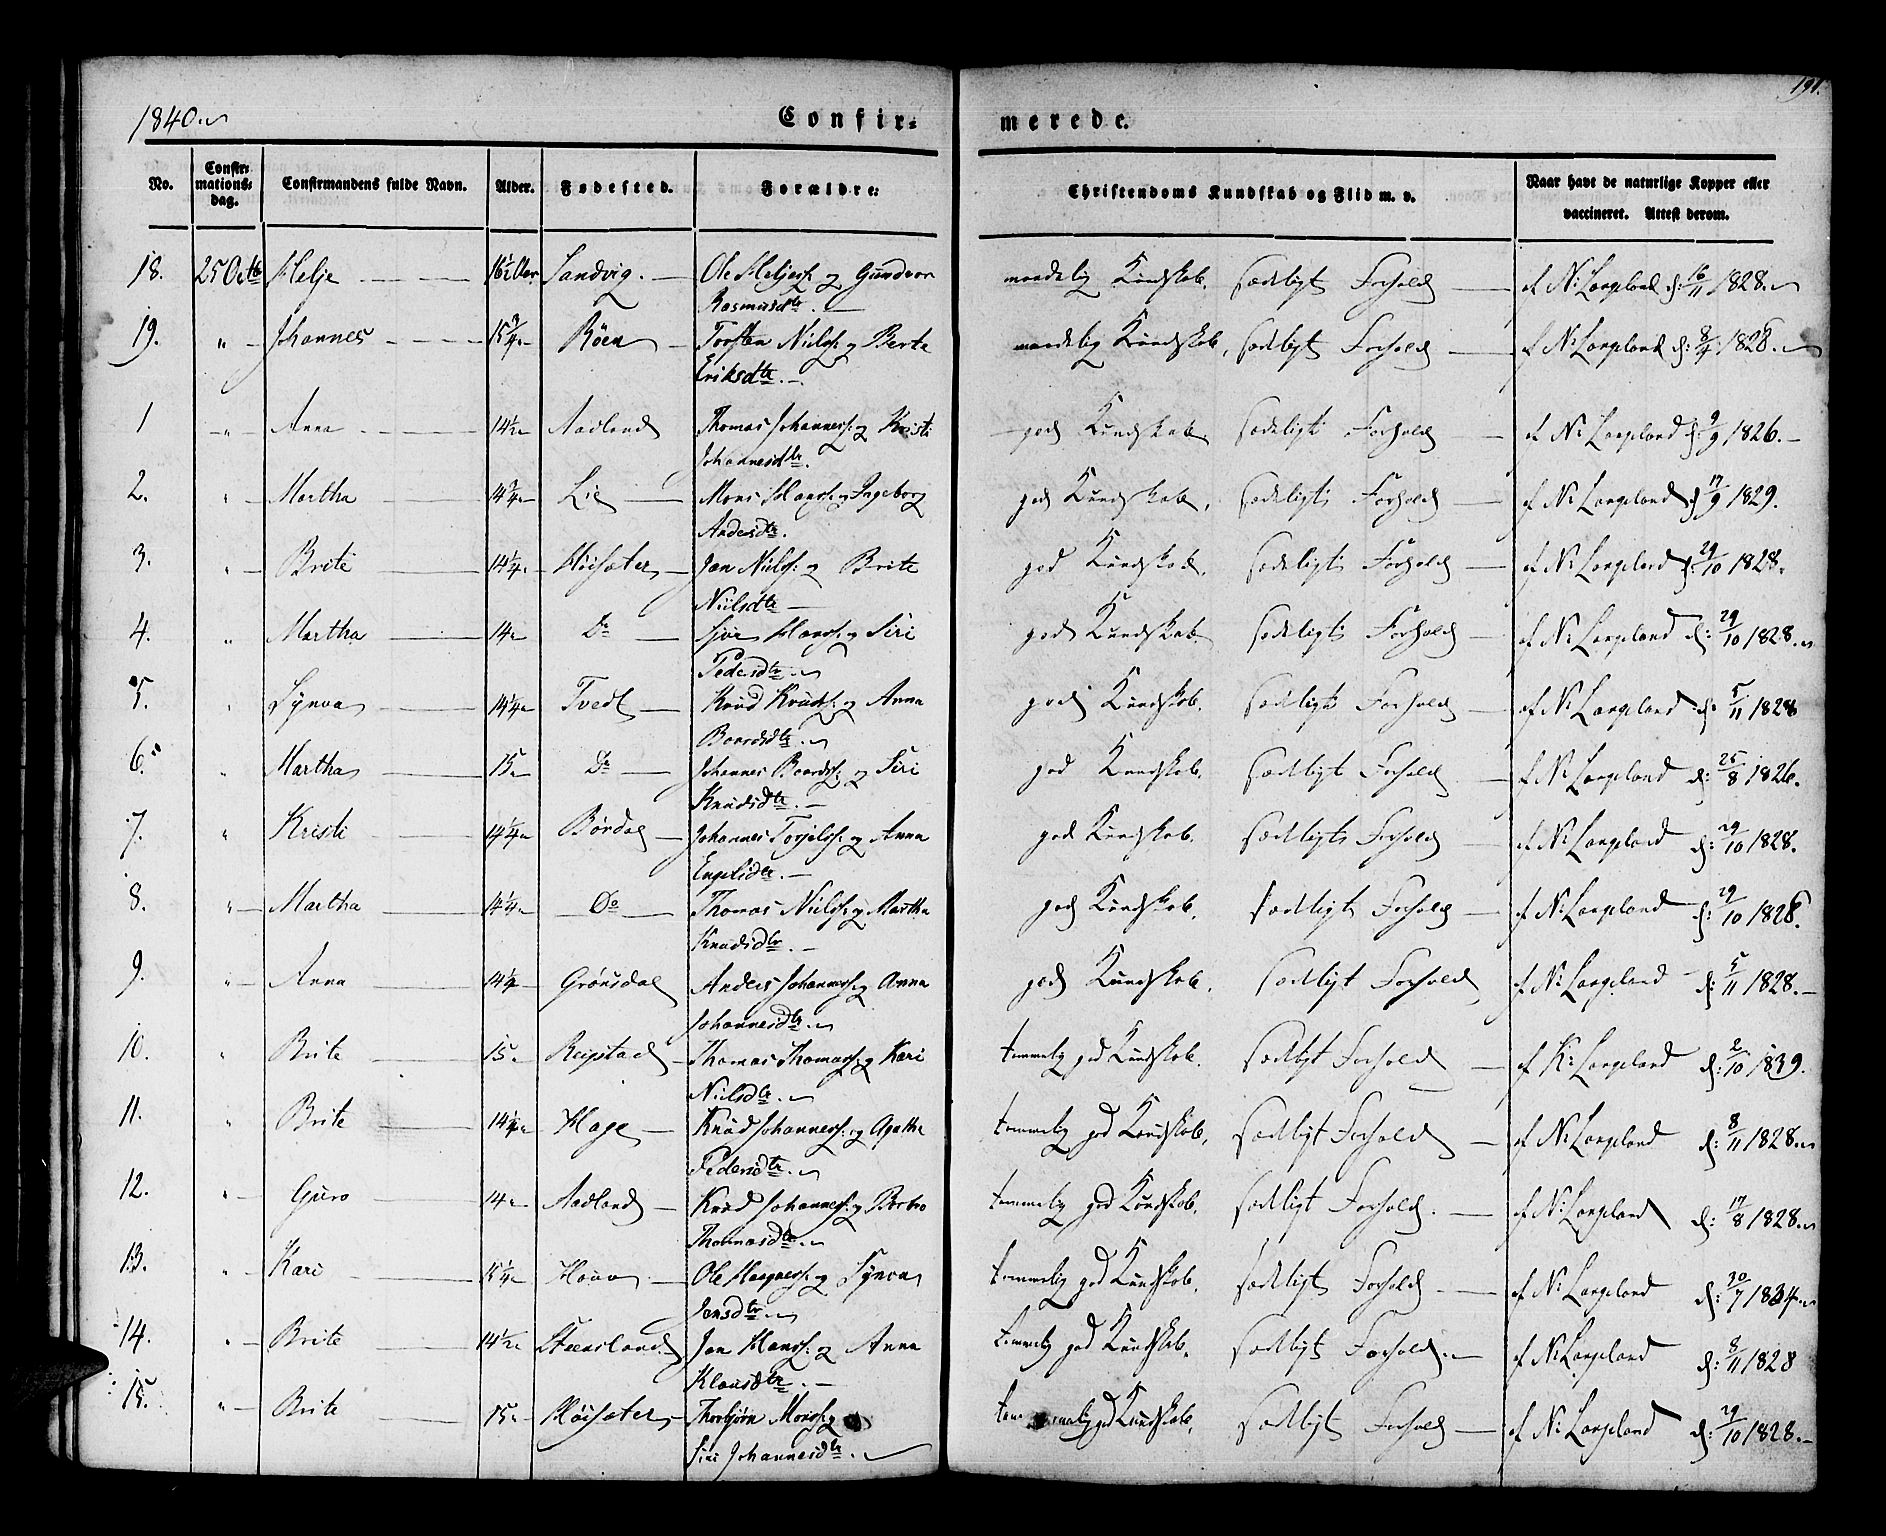 1840. Confir= merede. 191.
No. Confirmationsdag. Confirmandens fulde Navn. Alder. Fødested. Forældre: Christendoms Kundskab og Flid m. v. Naar havt de naturlige Kopper eller vaccineret. Attest derom.
18. 25 Octb Helje 16½ Aar Sandvig. Ole Heljes: og Gundvor maadelig Kundskab. sædeligt Forhold af N: Langeland d: 16/11 1828.
Rasmusdtr.
19. " Johannes 15¾ " Röen Torsten Niels: og Berte maadelig Kundskab, sædeligt Forhold af N: Langeland d: 8/4 1828.
Eriksdtr.
1 " Anna 14½ " Aadland Thomas Johannes: og Kristi god Kundskab sædeligt Forhold af N: Langeland d: 9/9 1826.
Johannesdtr.
2. " Martha 14¾ " Lie Mons Hans: og Ingeborg god Kundskab, sædeligt Forhold af N: Langeland d: 17/9 1829.
Andersdtr.
3. " Brite 14¼ " Höisæter Jon Niels: og Brite god Kundskab. sædeligt Forhold af N: Langeland d: 29/10 1828.
Nielsdtr
4. " Martha 14 " Do Sjur Hans: og Siri god Kundskab sædeligt Forhold af N: Langeland d: 29/10 1828.
Pedersdtr.
5. " Synva 14¼ " Tvedt Knud Knuds: og Anna god Kundskab. sædeligt Forhold af N: Langeland d: 5/11 1828
Baardsdtr.
6. " Martha 15 " Do Johannes Baards: og Siri god Kundskab. sædeligt Forhold af N: Langeland d: 25/8 1826.
Knudsdtr.
7. " Kristi 14¼ " Bördal Johannes Torjels: og Anna god Kundskab. sædeligt Forhold af N: Langeland d: 29/10 1828.
Engelsdtr.
8. " Martha 14¼ " Do Thomas Niels: og Martha god Kundskab. sædeligt Forhold af N: Langeland d: 29/10 1828.
Knudsdtr.
9. " Anna 14¼ " Grönsdal Anders Johannes: og Anna god Kundskab. sædeligt Forhold af N: Langeland d: 5/11 1828.
Johannesdtr.
10. " Brite 15 " Reigstad Thomas Thomas: og Kari temmelig god Kundskab. sædeligt Forhold af K: Langeland d: 2/10 1839.
Nielsdtr.
11. " Brite 14¼ " Hage Knud Johannes: og Agathe temmelig god Kundskab, sædeligt Forhold af N: Langeland d: 8/11 1828.
Pedersdtr.
12. " Guro 14 " Aadland Knud Johannes: og Barbro temmelig god Kundskab. sædeligt Forhold. af N: Langeland d: 17/8 1828.
Thomasdtr.
13. " Kari 15¼ " Houv Ole Magnes: og Synva temmelig god Kundskab. sædeligt Forhold. af N: Langeland d: 30/7 1834.
Jensdtr.
14. " Brite 14½ " Steensland Jon Hans: og Anna temmelig god Kundskab. sædeligt Forhold. af N: Langeland d: 8/11 1828
Klausdtr.
15. " Brite 15 " Höisæter Thorbjörn Mons: og temmelig god Kundskab. sædeligt Forhold af N: Langeland d: 29/10 1828.
Siri Johannesdtr.